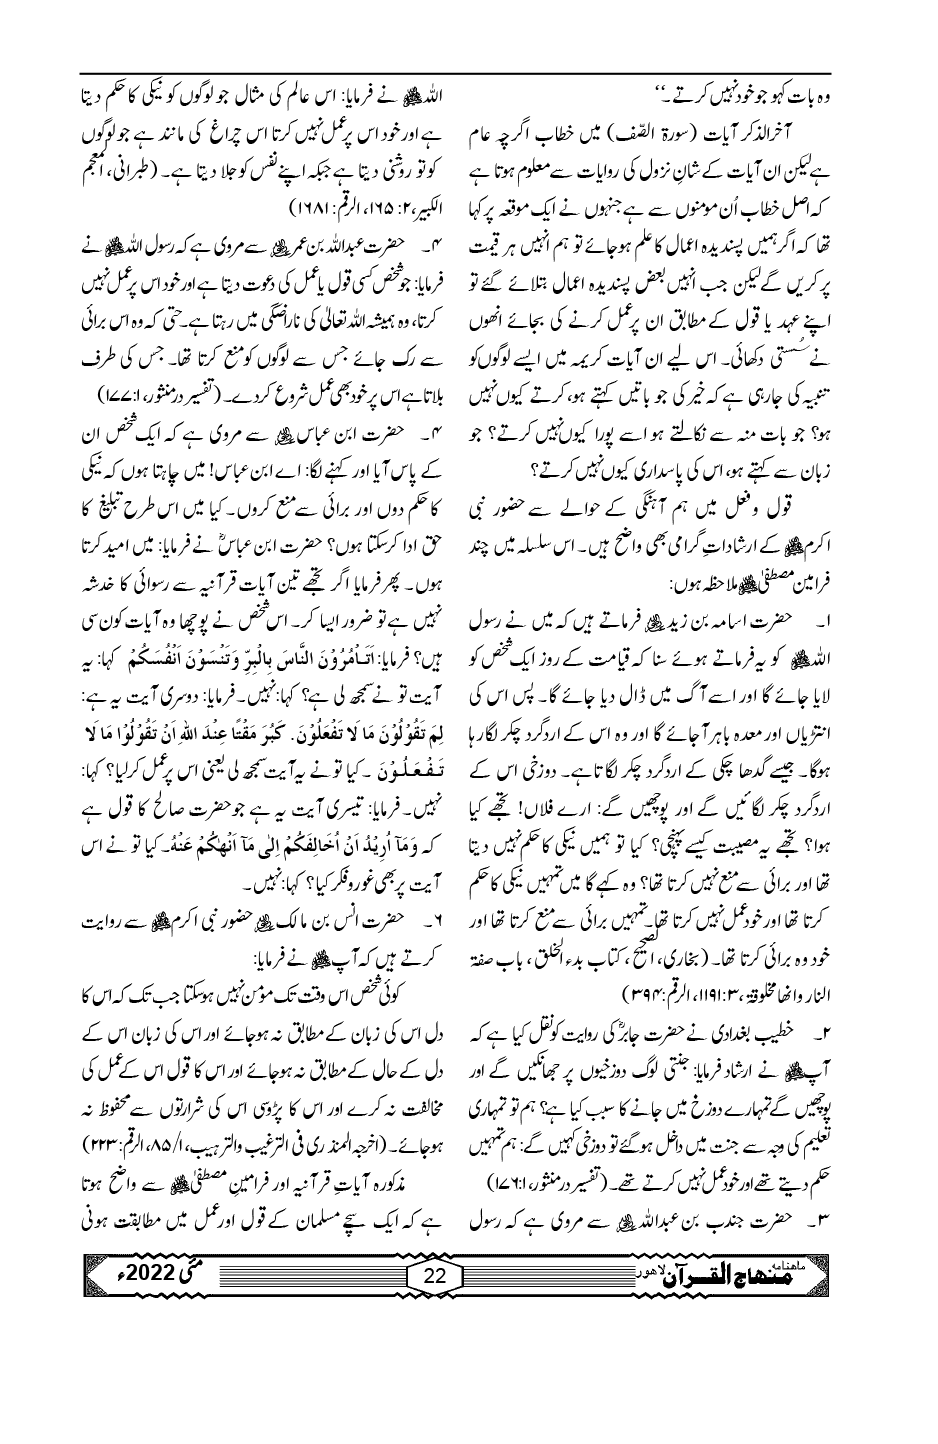 وہ بات کہو جو خود نہیں کرتے۔‘‘
آخرالذکر آیات (سورۃ الصّف) میں خطاب اگرچہ عام
ہے لیکن ان آیات کے شانِ نزول کی روایات سے معلوم ہوتا ہے
کہ اصل خطاب اُن مومنوں سے ہے جنہوں نے ایک موقعہ پر کہا
تھا کہ اگر ہمیں پسندیدہ اعمال کا علم ہوجائے تو ہم انہیں ہر قیمت
پر کریں گے لیکن جب انہیں بعض پسندیدہ اعمال بتلائے گئے تو
اپنے عہد یا قول کے مطابق ان پر عمل کرنے کی بجائے انھوں
نے سُستی دکھائی۔ اس لیے ان آیات کریمہ میں ایسے لوگوں کو
تنبیہ کی جارہی ہے کہ خیر کی جو باتیں کہتے ہو، کرتے کیوں نہیں
ہو؟ جو بات منہ سے نکالتے ہو اسے پورا کیوں نہیں کرتے؟ جو
زبان سے کہتے ہو، اس کی پاسداری کیوں نہیں کرتے؟
قول و فعل میں ہم آہنگی کے حوالے سے حضور نبی
اکرم ﷺ کے ارشاداتِ گرامی بھی واضح ہیں۔ اس سلسلہ میں چند
فرامین مصطفیٰ ﷺ ملاحظہ ہوں:
۱۔ حضرت اسامہ بن زید رضی اللہ عنہ فرماتے ہیں کہ میں نے رسول
اللہ ﷺ کو یہ فرماتے ہوئے سنا کہ قیامت کے روز ایک شخص کو
لایا جائے گا اور اسے آگ میں ڈال دیا جائے گا۔ پس اس کی
انتڑیاں اور معدہ باہر آجائے گا اور وہ اس کے اردگرد چکر لگا رہا
ہوگا۔ جیسے گدھا چکی کے اردگرد چکر لگاتا ہے۔ دوزخی اس کے
اردگرد چکر لگائیں گے اور پوچھیں گے: ارے فلاں! تجھے کیا
ہوا؟ تجھے یہ مصیبت کیسے پہنچی؟ کیا تو ہمیں نیکی کا حکم نہیں دیتا
تھا اور برائی سے منع نہیں کرتا تھا؟ وہ کہے گا میں تمہیں نیکی کا حکم
کرتا تھا اور خود عمل نہیں کرتا تھا۔ تمہیں برائی سے منع کرتا تھا اور
خود وہ برائی کرتا تھا۔ (بخاری، الصحیح، کتاب بدء الخلق، باب صفۃ
النار وانھا مخلوقۃ، ۳: ۱۱۹۱، الرقم: ۳۰۹۴)
۲۔ خطیب بغدادی نے حضرت جابرؓ کی روایت کو نقل کیا ہے کہ
آپ ﷺ نے ارشاد فرمایا: جنتی لوگ دوزخیوں پر جھانکیں گے اور
پوچھیں گے تمہارے دوزخ میں جانے کا سبب کیا ہے؟ ہم تو تمہاری
تعلیم کی وجہ سے جنت میں داخل ہوگئے تو دوزخی کہیں گے: ہم تمہیں
حکم دیتے تھے اور خود عمل نہیں کرتے تھے۔ (تفسیر درمنثور، ۱: ۱۷۶)
۳۔ حضرت جندب بن عبداللہ رضی اللہ عنہ سے مروی ہے کہ رسول
اللہ ﷺ نے فرمایا: اس عالم کی مثال جو لوگوں کو نیکی کا حکم دیتا
ہے اور خود اس پر عمل نہیں کرتا اس چراغ کی مانند ہے جو لوگوں
کو تو روشنی دیتا ہے جبکہ اپنے نفس کو جلا دیتا ہے۔ (طبرانی، المعجم
الکبیر، ۲: ۱۶۵، الرقم: ۱۶۸۱)
۴۔ حضرت عبداللہ بن عمر رضی اللہ عنہ سے مروی ہے کہ رسول اللہ ﷺ نے
فرمایا: جو شخص کسی قول یا عمل کی دعوت دیتا ہے اور خود اس پر عمل نہیں
کرتا، وہ ہمیشہ اللہ تعالیٰ کی ناراضگی میں رہتا ہے۔ حتی کہ وہ اس برائی
سے رک جائے جس سے لوگوں کو منع کرتا تھا۔ جس کی طرف
بلاتا ہے اس پر خود بھی عمل شروع کردے۔ (تفسیر درمنثور، ۱: ۱۷۷)
۴۔ حضرت ابن عباس رضی اللہ عنہ سے مروی ہے کہ ایک شخص ان
کے پاس آیا اور کہنے لگا: اے ابن عباس! میں چاہتا ہوں کہ نیکی
کا حکم دوں اور برائی سے منع کروں۔ کیا میں اس طرح تبلیغ کا
حق ادا کرسکتا ہوں؟ حضرت ابن عباسؓ نے فرمایا: میں امید کرتا
ہوں۔ پھر فرمایا اگر تجھے تین آیات قرآنیہ سے رسوائی کا خدشہ
نہیں ہے تو ضرور ایسا کر۔ اس شخص نے پوچھا وہ آیات کون سی
ہیں؟ فرمایا: اَتَاْمُرُوْنَ النَّاسَ بِالْبِرِّ وَتَنْسَوْنَ اَنْفُسَكُمْ کہا: یہ
آیت تو نے سمجھ لی ہے؟ کہا: نہیں۔ فرمایا: دوسری آیت یہ ہے:
لِمَ تَقُوْلُوْنَ مَا لَا تَفْعَلُوْنَ. كَبُرَ مَقْتًا عِنْدَ اللهِ اَنْ تَقُوْلُوْا مَا لَا
تَفْعَلُوْنَ۔ کیا تو نے یہ آیت سمجھ لی یعنی اس پر عمل کرلیا؟ کہا:
نہیں۔ فرمایا: تیسری آیت یہ ہے جو حضرت صالح کا قول ہے
کہ وَمَآ اُرِيْدُ اَنْ اُخَالِفَكُمْ اِلٰى مَآ اَنْهٰكُمْ عَنْهُ۔ کیا تو نے اس
آیت پر بھی غور و فکر کیا؟ کہا: نہیں۔
۶۔ حضرت انس بن مالک رضی اللہ عنہ حضور نبی اکرم ﷺ سے روایت
کرتے ہیں کہ آپ ﷺ نے فرمایا:
کوئی شخص اس وقت تک مؤمن نہیں ہوسکتا جب تک کہ اس کا
دل اس کی زبان کے مطابق نہ ہوجائے اور اس کی زبان اس کے
دل کے حال کے مطابق نہ ہوجائے اور اس کا قول اس کے عمل کی
مخالفت نہ کرے اور اس کا پڑوسی اس کی شرارتوں سے محفوظ نہ
ہوجائے۔ (اخرجہ المنذری فی الترغیب والترہیب، ۱/ ۸۵، الرقم: ۲۲۳)
مذکورہ آیاتِ قرآنیہ اور فرامینِ مصطفیٰ ﷺ سے واضح ہوتا
ہے کہ ایک سچے مسلمان کے قول اور عمل میں مطابقت ہونی
ماھنامہ منھاج القرآن لاھور 22 مئی 2022ء